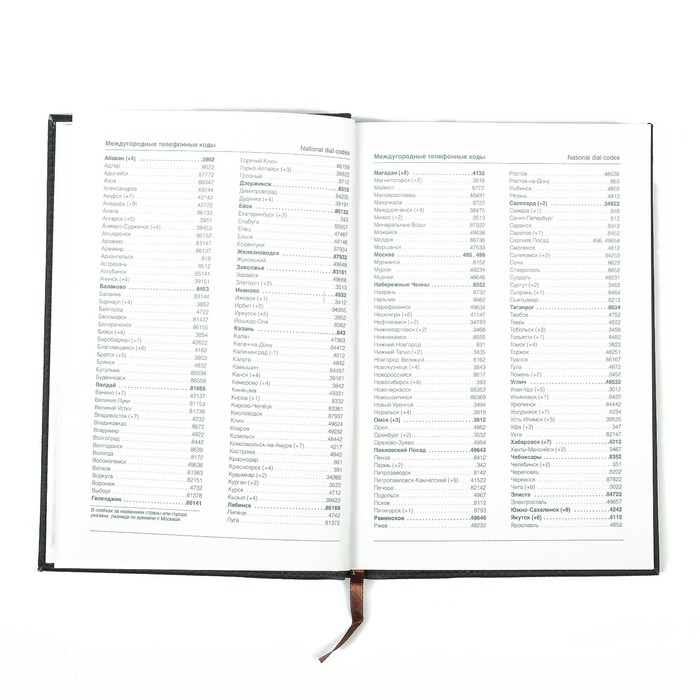 Междугородные телефонные коды
National dial codes
Абакан (+4) 3902
Адлер 8622
Адыгейск 87772
Азов 86342
Александров 49244
Амурск (+7) 42142
Анадырь (+9) 42722
Анапа 86133
Ангарск (+5) 3951
Анжеро-Судженск (+4) 38453
Апшеронск 86152
Арзамас 83147
Армавир 86137
Архангельск 818
Астрахань 8512
Ахтубинск 85141
Ачинск (+4) 39151
Балаково 8453
Балахна 83144
Барнаул (+4) 3852
Белгород 4722
Беломорск 81437
Белореченск 86155
Бийск (+4) 3854
Биробиджан (+7) 42622
Благовещенск (+6) 4162
Братск (+5) 3953
Брянск 4832
Бугульма 85594
Буденновск 86559
Валдай 81666
Ванино (+7) 42137
Великие Луки 81153
Великий Устюг 81738
Владивосток (+7) 4232
Владикавказ 8672
Владимир 4922
Волгоград 8442
Волгодонск 8639
Вологда 8172
Волоколамск 49636
Волхов 81363
Воркута 82151
Воронеж 4732
Выборг 81378
Геленджик 86141
В скобках за названием страны или города
указана разница по времени с Москвой.
Горячий Ключ 86159
Горно-Алтайск (+3) 38822
Грозный 8712
Дзержинск 8313
Димитровград 84235
Дудинка (+4) 39191
Ейск 86132
Екатеринбург (+2) 343
Елабуга 85557
Елец 47467
Ельня 48146
Ессентуки 87934
Железноводск 87932
Жуковский 49648
Заволжье 83161
Зарайск 49666
Златоуст (+2) 3513
Иваново 4932
Ижевск (+1) 3412
Ирбит (+2) 34355
Иркутск (+5) 3952
Йошкар-Ола 8362
Казань 843
Калач 47363
Калач-на-Дону 84472
Калининград (-1) 4012
Калуга 4842
Камышин 84457
Канск (+4) 39161
Кемерово (+4) 3842
Кинешма 49331
Киров (+1) 8332
Кирово-Чепецк 83361
Кисловодск 87937
Клин 49624
Ковров 49232
Козельск 48442
Комсомольск-на-Амуре (+7) 4217
Кострома 4942
Краснодар 861
Красноярск (+4) 391
Кудымкар (+2) 34260
Курган (+2) 3522
Курск 4712
Кызыл (+4) 39422
Лабинск 86169
Липецк 4742
Луга 81372
Междугородные телефонные коды
National dial codes
Магадан (+8) 4132
Магнитогорск (+2) 3519
Майкоп 8772
Малоярославец 48431
Махачкала 8722
Междуреченск (+4) 38475
Миасс (+2) 3513
Минеральные Воды 87922
Можайск 49638
Моздок 86736
Моршанск 47533
Москва 495, 499
Мурманск 8152
Муром 49234
Мценск 48646
Набережные Челны 8552
Назрань 8732
Нальчик 8662
Нарофоминск 49634
Нерюнгри (+6) 41147
Нефтекамск (+2) 34783
Нижневартовск (+2) 3466
Нижнекамск 8555
Нижний Новгород 831
Нижний Тагил (+2) 3435
Новгород Великий 8162
Новокузнецк (+4) 3843
Новороссийск 8617
Новосибирск (+4) 383
Новочеркасск 86352
Новошахтинск 86369
Новый Уренгой 3494
Норильск (+4) 3919
Омск (+3) 3812
Орел 4862
Оренбург (+2) 3532
Орехово-Зуево 4964
Павловский Посад 49643
Пенза 8412
Пермь (+2) 342
Петрозаводск 8142
Петропавловск-Камчатский (+9) 41522
Печера 82142
Подольск 4967
Псков 8112
Пятигорск (+1) 8793
Раменское 49646
Ржев 48232
Ростов 48536
Ростов-на-Дону 863
Рыбинск 4855
Рязань 4912
Салехард (+2) 34922
Самара (+1) 846
Санкт-Петербург 812
Саранск 8342
Саратов (+1) 8452
Сергиев Посад 496, 49654
Смоленск 4812
Соликамск (+2) 34253
Сочи 8622
Ставрополь 8652
Суздаль 49231
Сургут (+2) 3462
Сызрань (+1) 8464
Сыктывкар 8212
Таганрог 8634
Тамбов 4752
Тверь 4822
Тобольск (+2) 3456
Тольятти (+1) 8482
Томск (+4) 3822
Торжок 48251
Туапсе 86167
Тула 4872
Тюмень (+2) 3452
Углич 48532
Улан-Удэ (+5) 3012
Ульяновск (+1) 8422
Урюпинск 84442
Уссурийск (+7) 4234
Усть-Илимск (+5) 39535
Уфа (+2) 347
Ухта 82147
Хабаровск (+7) 4212
Ханты-Мансийск (+2) 3467
Чебоксары 8352
Челябинск (+2) 351
Череповец 8202
Черкесск 87822
Чита (+6) 3022
Электросталь 49657
Элиста 84722
Южно-Сахалинск (+8) 4242
Якутск (+6) 4112
Ярославль 4852